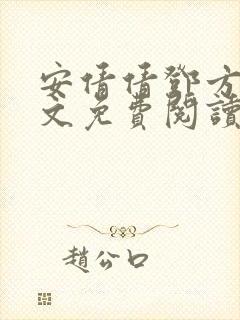 安倩倩鄧方
文免費閱讀
趙公口